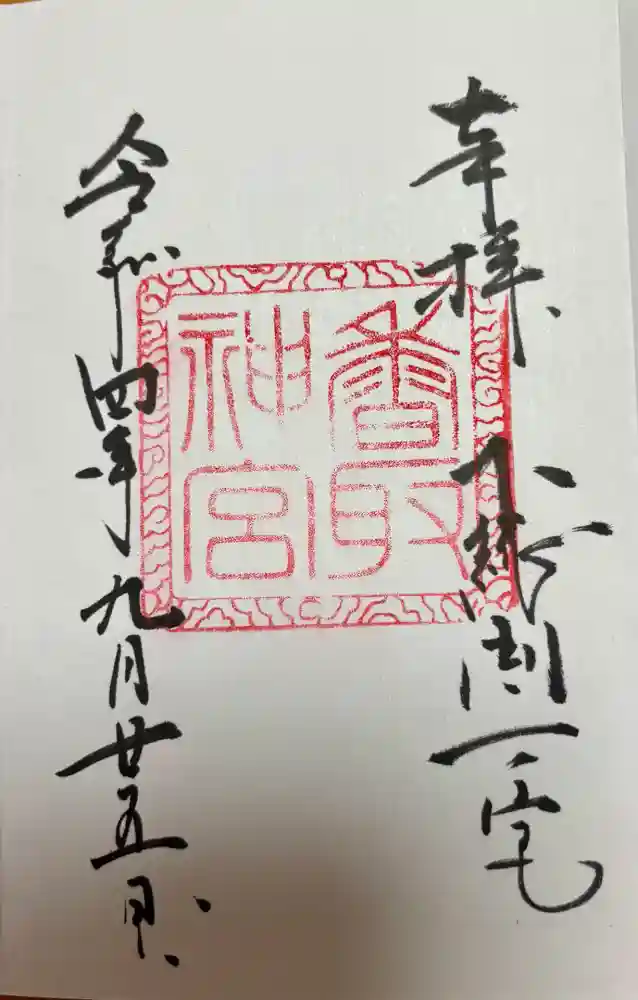 奉拝 下総国一宮
香取
神宮
令和四年九月廿五日